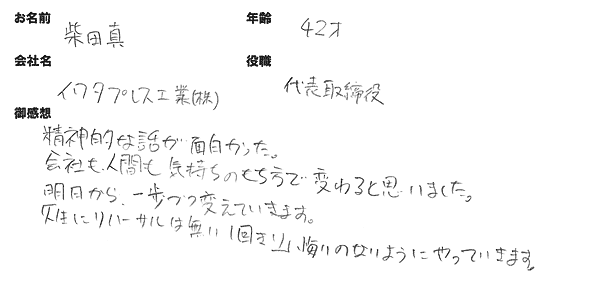 お名前 年齢
柴田真 42才
会社名 役職
イワタプレス工業(株) 代表取締役
御感想
精神的な話が面白かった。
会社も、人間も気持ちのもち方で変わると思いました。
明日から、一歩づつ変えていきます。
人生にリハーサルは無い「1回きり」、悔いのないようにやっていきます。